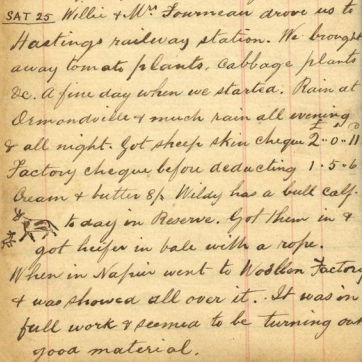 SAT 25 Willie & Mr Fourneau drove us to
Hastings railway station. We brought
away tomato plants, cabbage plants
&c. A fine day when we started. Rain at
Ormondville & much rain all evening
& all night. Got sheep skin cheque £2..0..11
Factory cheque before deducting 1..5..6
Cream & butter 8/. Wildy has a bull calf.
& to day in Reserve. Got them in &
got heifer in bale with a rope.
When in Napier went to Woollen Factory
& was showed all over it. It was in
full work & seemed to be turning out
good material.